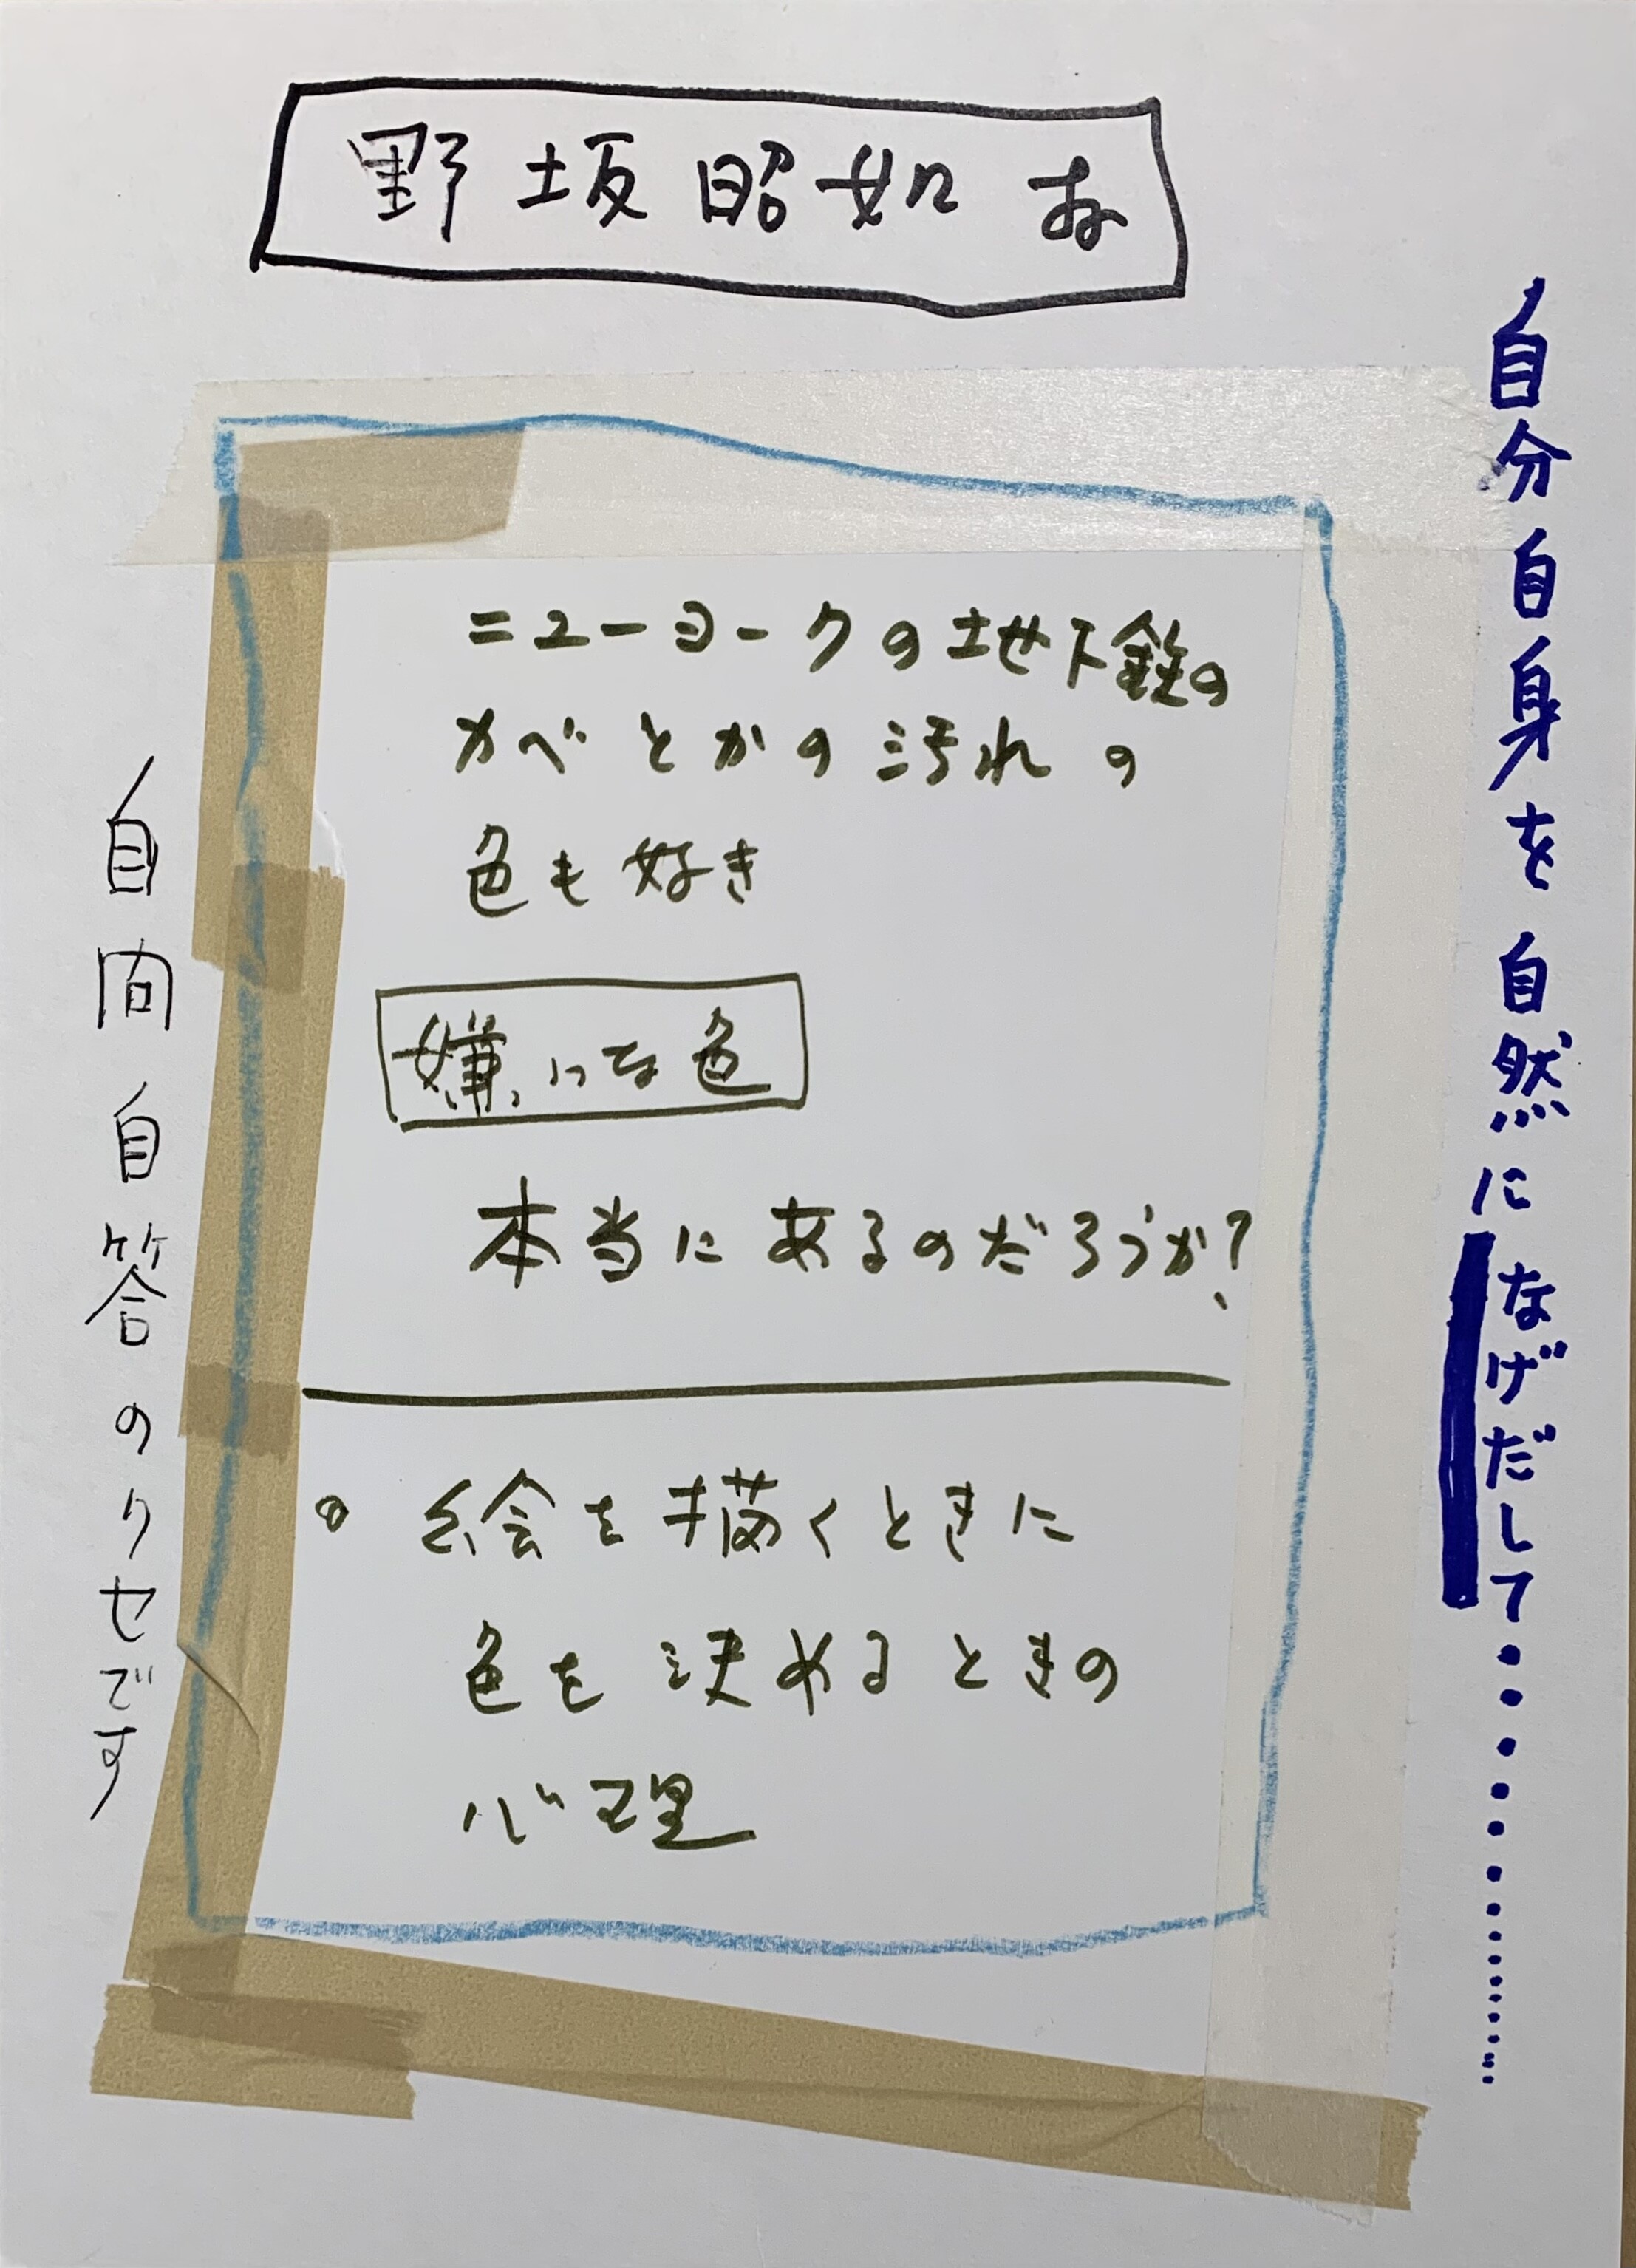 野坂昭如
自分自身を自然になげだして・・・・・・・・・・・・・・・・
ニューヨークの地下鉄の
カベとかの汚れの
色も好き
嫌いな色
本当にあるのだろうか?
。絵を描くときに
色を決めるときの
心理
自問自答のクセです